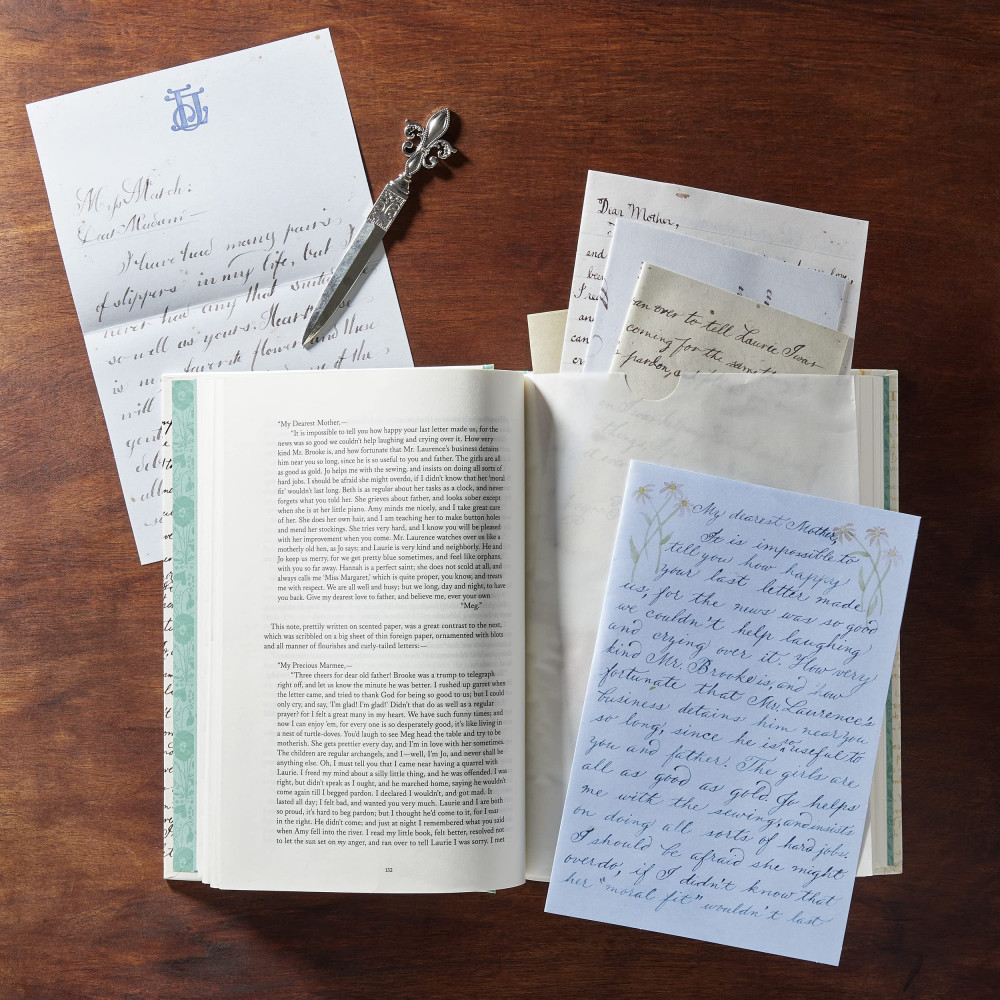 JL
Miss March:
Dear Madam—
I have had many pairs
of slippers in my life, but I
never had any that suited me
so well as yours. Heart
is my favorite flower, and these
will
of the
Dear Mother,
and
an over to tell Laurie I was
coming for the same
pardon,
"My Dearest Mother,—
"It is impossible to tell you how happy your last letter made us, for the
news was so good we couldn't help laughing and crying over it. How very
kind Mr. Brooke is, and how fortunate that Mr. Laurence's business detains
him near you so long, since he is so useful to you and father. The girls are all
as good as gold. Jo helps me with the sewing, and insists on doing all sorts of
hard jobs. I should be afraid she might overdo, if I didn't know that her 'moral
fit' wouldn't last long. Beth is as regular about her tasks as a clock, and never
forgets what you told her. She grieves about father, and looks sober except
when she is at her little piano. Amy minds me nicely, and I take great care
of her. She does her own hair, and I am teaching her to make button holes
and mend her stockings. She tries very hard, and I know you will be pleased
with her improvement when you come. Mr. Laurence watches over us like a
motherly old hen, as Jo says; and Laurie is very kind and neighborly. He and
Jo keep us merry, for we get pretty blue sometimes, and feel like orphans,
with you so far away. Hannah is a perfect saint; she does not scold at all, and
always calls me 'Miss Margaret,' which is quite proper, you know, and treats
me with respect. We are all well and busy; but we long, day and night, to have
you back. Give my dearest love to father, and believe me, ever your own
"Meg."
This note, prettily written on scented paper, was a great contrast to the next,
which was scribbled on a big sheet of thin foreign paper, ornamented with blots
and all manner of flourishes and curly-tailed letters:—
"My Precious Marmee,—
"Three cheers for dear old father! Brooke was a trump to telegraph
right off, and let us know the minute he was better. I rushed up garret when
the letter came, and tried to thank God for being so good to us; but I could
only cry, and say, 'I'm glad! I'm glad!' Didn't that do as well as a regular
prayer? for I felt a great many in my heart. We have such funny times; and
now I can enjoy 'em, for every one is so desperately good, it's like living in
a nest of turtle-doves. You'd laugh to see Meg head the table and try to be
motherish. She gets prettier every day, and I'm in love with her sometimes.
The children are regular archangels, and I—well, I'm Jo, and never shall be
anything else. Oh, I must tell you that I came near having a quarrel with
Laurie. I freed my mind about a silly little thing, and he was offended. I was
right, but didn't speak as I ought, and he marched home, saying he wouldn't
come again till I begged pardon. I declared I wouldn't, and got mad. It
lasted all day; I felt bad, and wanted you very much. Laurie and I are both
so proud, it's hard to beg pardon; but I thought he'd come to it, for I was
in the right. He didn't come; and just at night I remembered what you said
when Amy fell into the river. I read my little book, felt better, resolved not
to let the sun set on my anger, and ran over to tell Laurie I was sorry. I met
132
My dearest Mother,
It is impossible to
tell you how happy
your last letter made
us, for the news was so good
we couldn't help laughing
and crying over it. How very
kind Mr. Brooke is, and how
fortunate that Mr. Laurence's
business detains him near you
so long, since he is so useful to
you and father. The girls are
all as good as gold. Jo helps
me with the sewing, and insists
on doing all sorts of hard jobs.
I should be afraid she might
overdo, if I didn't know that
her "moral fit" wouldn't last